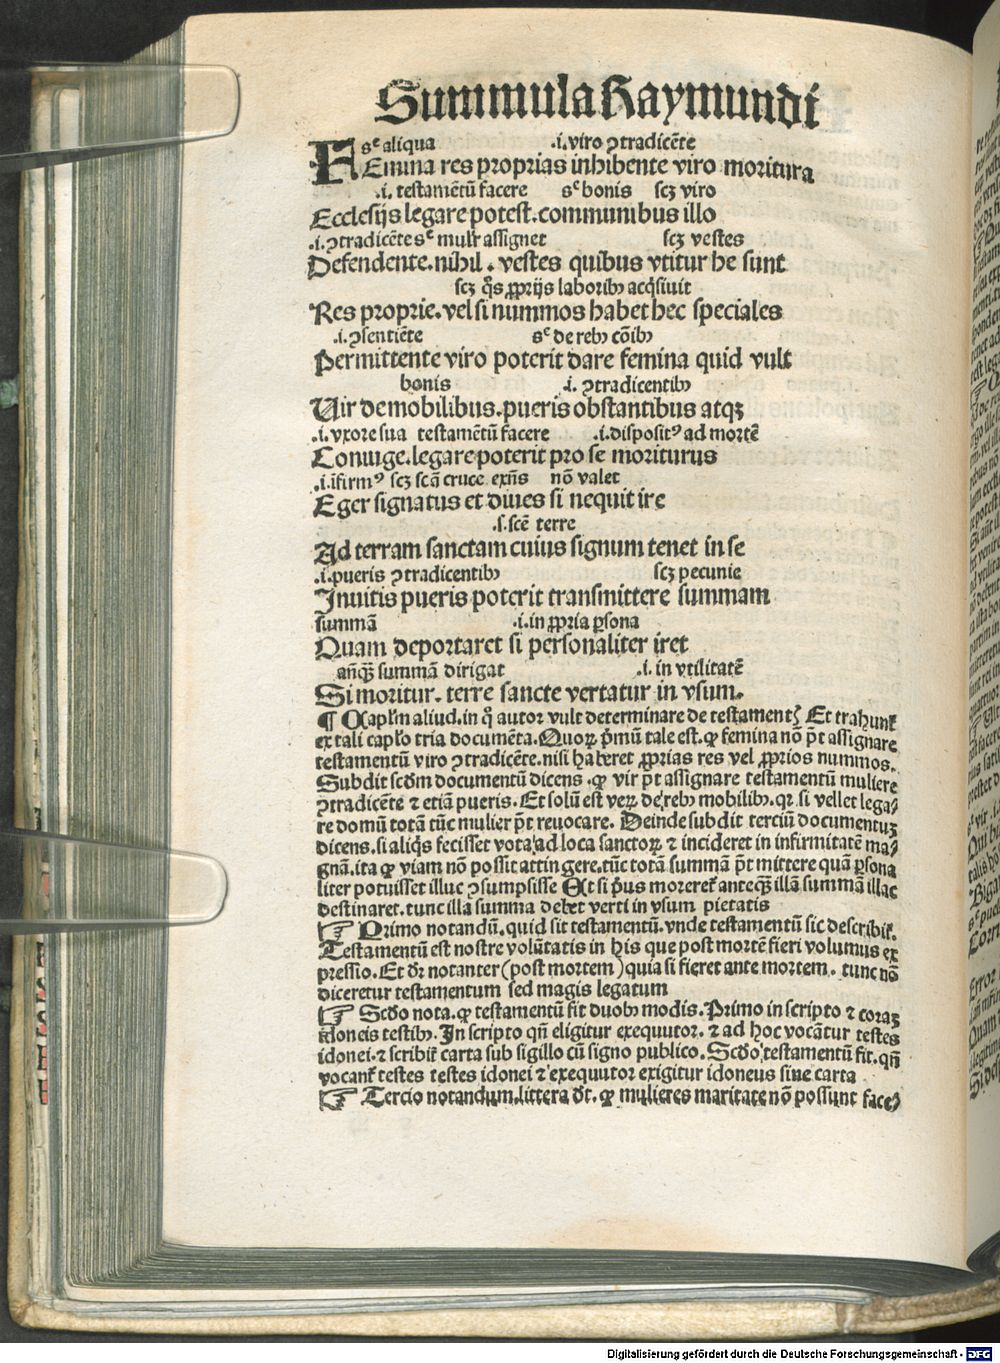 Summula Raymundi
sᶜ aliqua .i. viro ꝯtradicẽte
FEmina res proprias inhibente viro moritura
.i. testamẽtũ facere sᶜ bonis scꝫ viro
Ecclesijs legare potest. communibus illo
.i. ꝯtradicẽte sᶜ mulr̃ assignet scꝫ vestes
Defendente. nihil. vestes quibus vtitur he sunt
scꝫ q̃s ꝓprijs laboribꝰ acq̃siuit
Res proprie. vel si nummos habet hec speciales
.i. ꝯsentiẽte sᶜ de rebꝰ cõibꝰ
Permittente viro poterit dare femina quid vult
bonis .i. ꝯtradicentibꝰ
Uir de mobilibus. pueris obstantibus atqꝫ
.i. vxore sua testamẽtũ facere .i. dispositꝰ ad mortẽ
Coniuge. legare poterit pro se moriturus
.i. ĩfirmꝰ scꝫ scã cruce exñs nõ valet
Eger signatus et diues si nequit ire
.s. scẽ terre
Ad terram sanctam cuius signum tenet in se
.i. pueris ꝯtradicentibꝰ scꝫ pecunie
Inuitis pueris poterit transmittere summam
summã .i. in ꝓpria ꝑsona
Quam deportaret si personaliter iret
añq̃ꝫ summã dirigat .i. in vtilitatẽ
Si moritur. terre sancte vertatur in vsum.
¶ Capľm aliud. in q̃ autor vult determinare de testamentꝭ Et trahunť
ex tali capľo tria documẽta. Quoꝝ p̃mũ tale est. ꝙ femina nõ p̃t assignare
testamentũ viro ꝯtradicẽte. nisi haberet ꝓprias res vel ꝓprios nummos.
Subdit scđm documentũ dicens. ꝙ vir p̃t assignare testamentũ muliere
ꝯtradicẽte ⁊ etiã pueris. Et solũ est veꝝ de rebꝰ mobilibꝰ. qꝛ si vellet lega⸗
re domũ totã tũc mulier p̃t reuocare. Deinde subdit terciũ documentuꝫ
dicens. si aliq̃s fecisset vota ad loca sanctoꝝ ⁊ incideret in infirmitatẽ ma⸗
gnã. ita ꝙ viam nõ possit attingere. tũc totã summã p̃t mittere quã ꝑsona
liter potuisset illuc ꝯsumpsisse Et si p̃us morereť anteq̃ꝫ illã summã illac
destinaret. tunc illa summa debet verti in vsum pietatis
☞ Primo notandũ. quid sit testamentũ. vnde testamentũ sic describiť.
Testamentũ est nostre volũtatis in his que post mortẽ fieri volumus ex
pressio. Et dr̃ notanter (post mortem) quia si fieret ante mortem. tunc nõ
diceretur testamentum sed magis legatum
☞ Scđo nota. ꝙ testamentũ fit duobꝰ modis. Primo in scripto ⁊ coraꝫ
idoneis testibꝰ. In scripto qñ eligitur exequutor. ⁊ ad hoc vocãtur testes
idonei. ⁊ scribiť carta sub sigillo cũ signo publico. Scđo testamentũ fit. qñ
vocanť testes testes idonei ⁊ exequutor exigitur idoneus sine carta
☞ Tercio notandum. littera dr̃t. ꝙ mulieres maritate nõ possunt face⸗
Digitalisierung gefördert durch die Deutsche Forschungsgemeinschaft - DFG